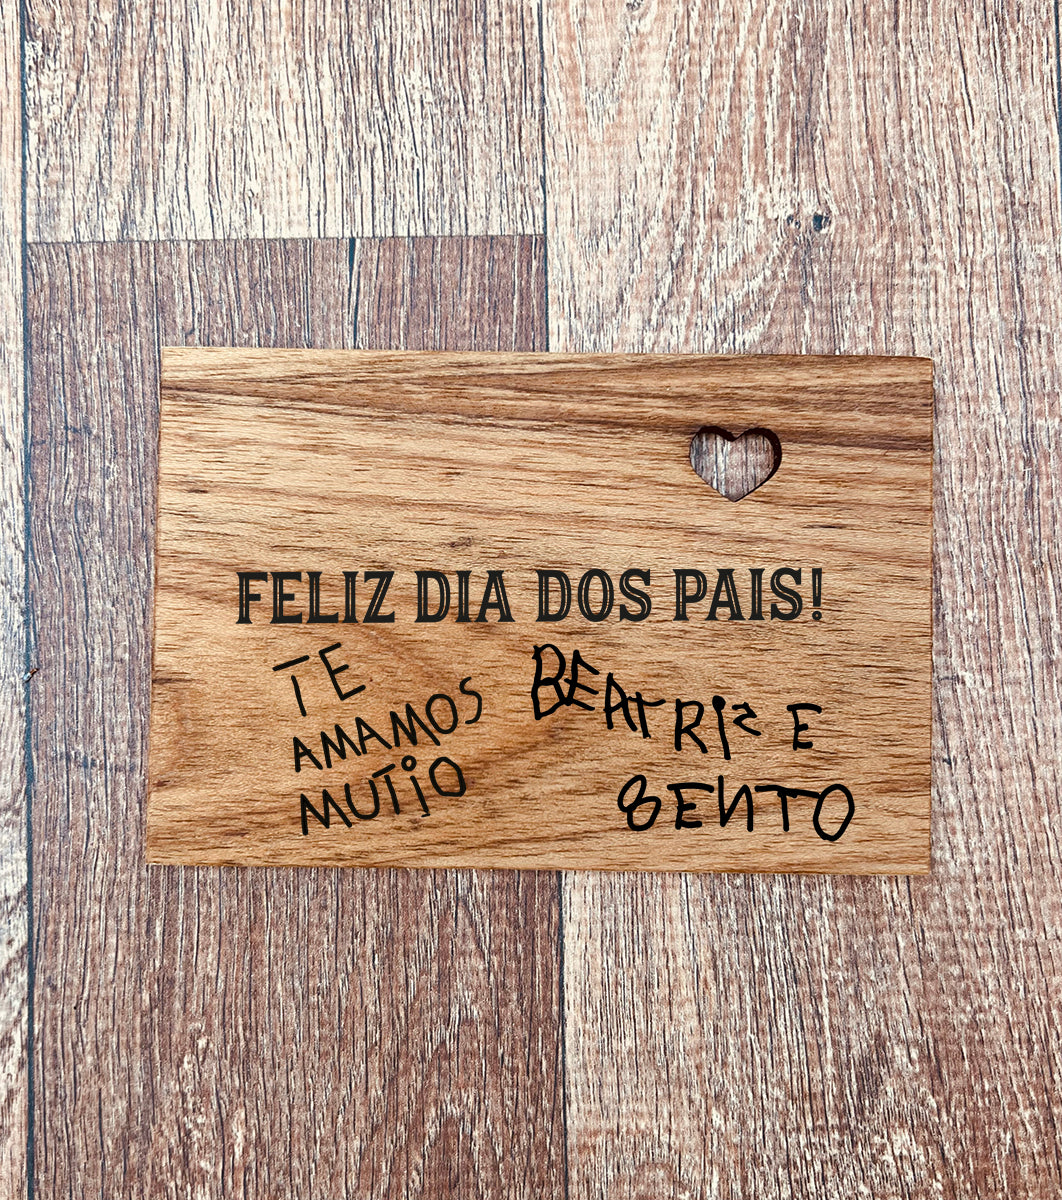 FELIZ DIA DOS PAIS!
TE
AMAMOS
MUTiO
BEATRiz E
BENTO